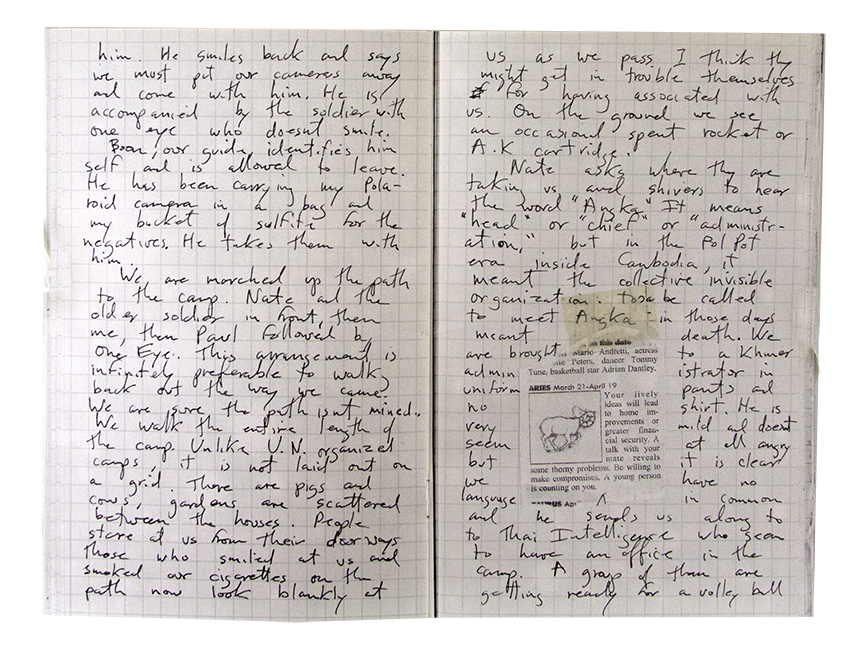 him. He smiles back and says
we must put our cameras away
and come with him. He is
accompanied by the soldier with
one eye who doesn't smile.
Boon, our guide, identifies him
self and is allowed to leave.
He has been carrying my Pola-
roid camera in a bag and
my bucket of sulfite for the
negatives. He takes them with
him.
We are marched up the path
to the camp. Nate and the
older soldier in front, then
me, then Paul followed by
One Eye. This arrangement is
infinitely preferable to walking
back out the way we came.
We are sure the path isn't mined.
We walk the entire length of
the camp. Unlike U.N. organized
camps, it is not laid out on
a grid. There are pigs and
cows, gardens are scattered
between the houses. People
stare at us from their doorways
those who smiled at us and
smoked our cigarettes on the
path now look blankly at
us as we pass. I think they
might get in trouble themselves
for having associated with
us. On the ground we see
an occasional spent rocket or
A.K cartridge.
Nate asks where they are
taking us and shivers to hear
the word "Angka" It means
"head" or "chief" or "administr-
ation," but in the Pol Pot
era inside Cambodia, it
meant the collective invisible
organization. to be called
to meet Angka - in those days
meant death. We
are brought to a Khmer
admin istrator in
uniform pants and
no shirt. He is
very mild and doesnt
seem at all angry
but it is clear
we have no
language in common
and he sends us along to
to Thai Intelligence who seem
to have an office in the
camp. A group of them are
getting ready for a volley ball
on this date
Mario Andretti, actress
Peters, dancer Tommy
Tune, basketball star Adrian Dantley.
ARIES March 21-April 19
Your lively
ideas will lead
to home im-
provements or
greater finan-
cial security. A
talk with your
mate reveals
some thorny problems. Be willing to
make compromises. A young person
is counting on you.